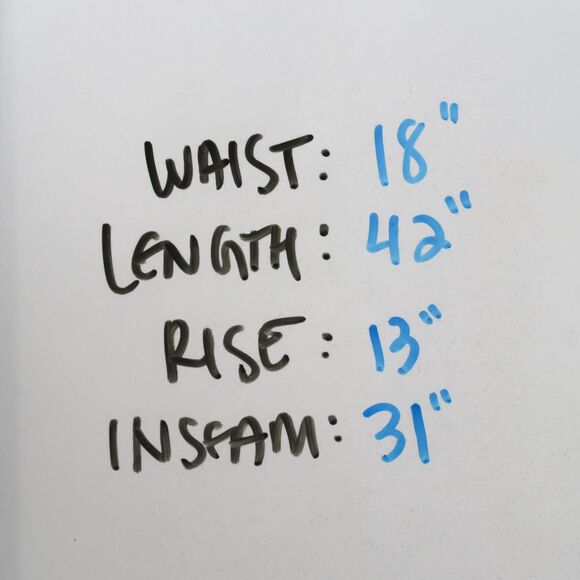 WAIST: 18"
LENGTH: 42"
RISE: 13"
INSEAM: 31"